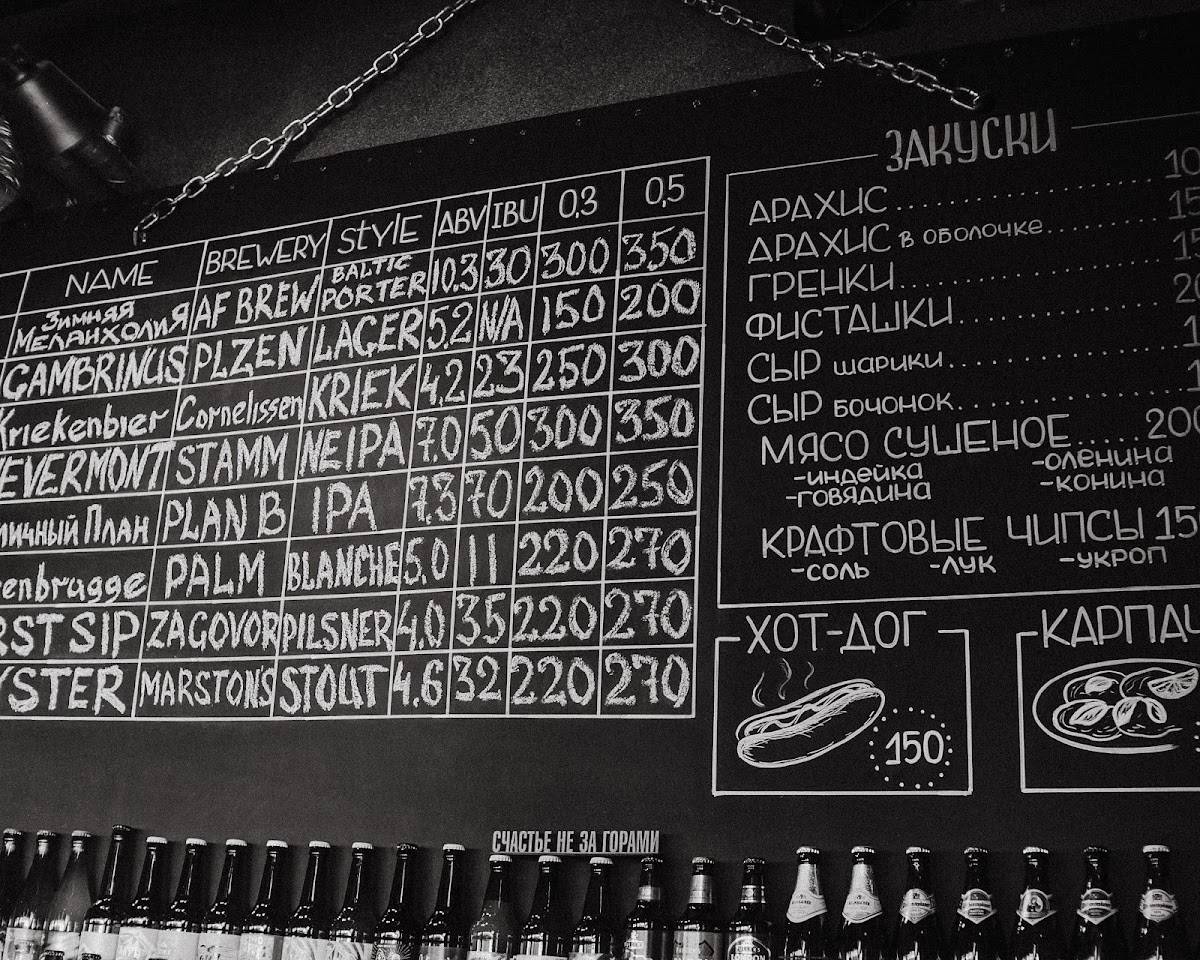 NAME BREWERY STYLE ABV IBU 0,3 0,5
Зимняя Меланхолия AF BREW BALTIC PORTER 10.3 30 300 350
GAMBRINUS PLZEN LAGER 5.2 N/A 150 200
Kriekenbier Cornelissen KRIEK 4,2 23 250 300
EVERMONT STAMM NE IPA 7.0 50 300 350
личный План PLAN B IPA 7.3 70 200 250
enbrugge PALM BLANCHE 5.0 11 220 270
RST SIP ZAGOVOR PILSNER 4.0 35 220 270
YSTER MARSTON'S STOUT 4.6 32 220 270
ЗАКУСКИ
АРАХИС
АРАХИС В ОБОЛОЧКЕ
ГРЕНКИ
ФИСТАШКИ
СЫР ШАРИКИ
СЫР БОЧОНОК
МЯСО СУШЕНОЕ.....200
-ИНДЕЙКА -ОЛЕНИНА
-ГОВЯДИНА -КОНИНА
КРАФТОВЫЕ ЧИПСЫ 15
-СОЛЬ -ЛУК -УКРОП
ХОТ-ДОГ
150
КАРПАЧ
СЧАСТЬЕ НЕ ЗА ГОРАМИ